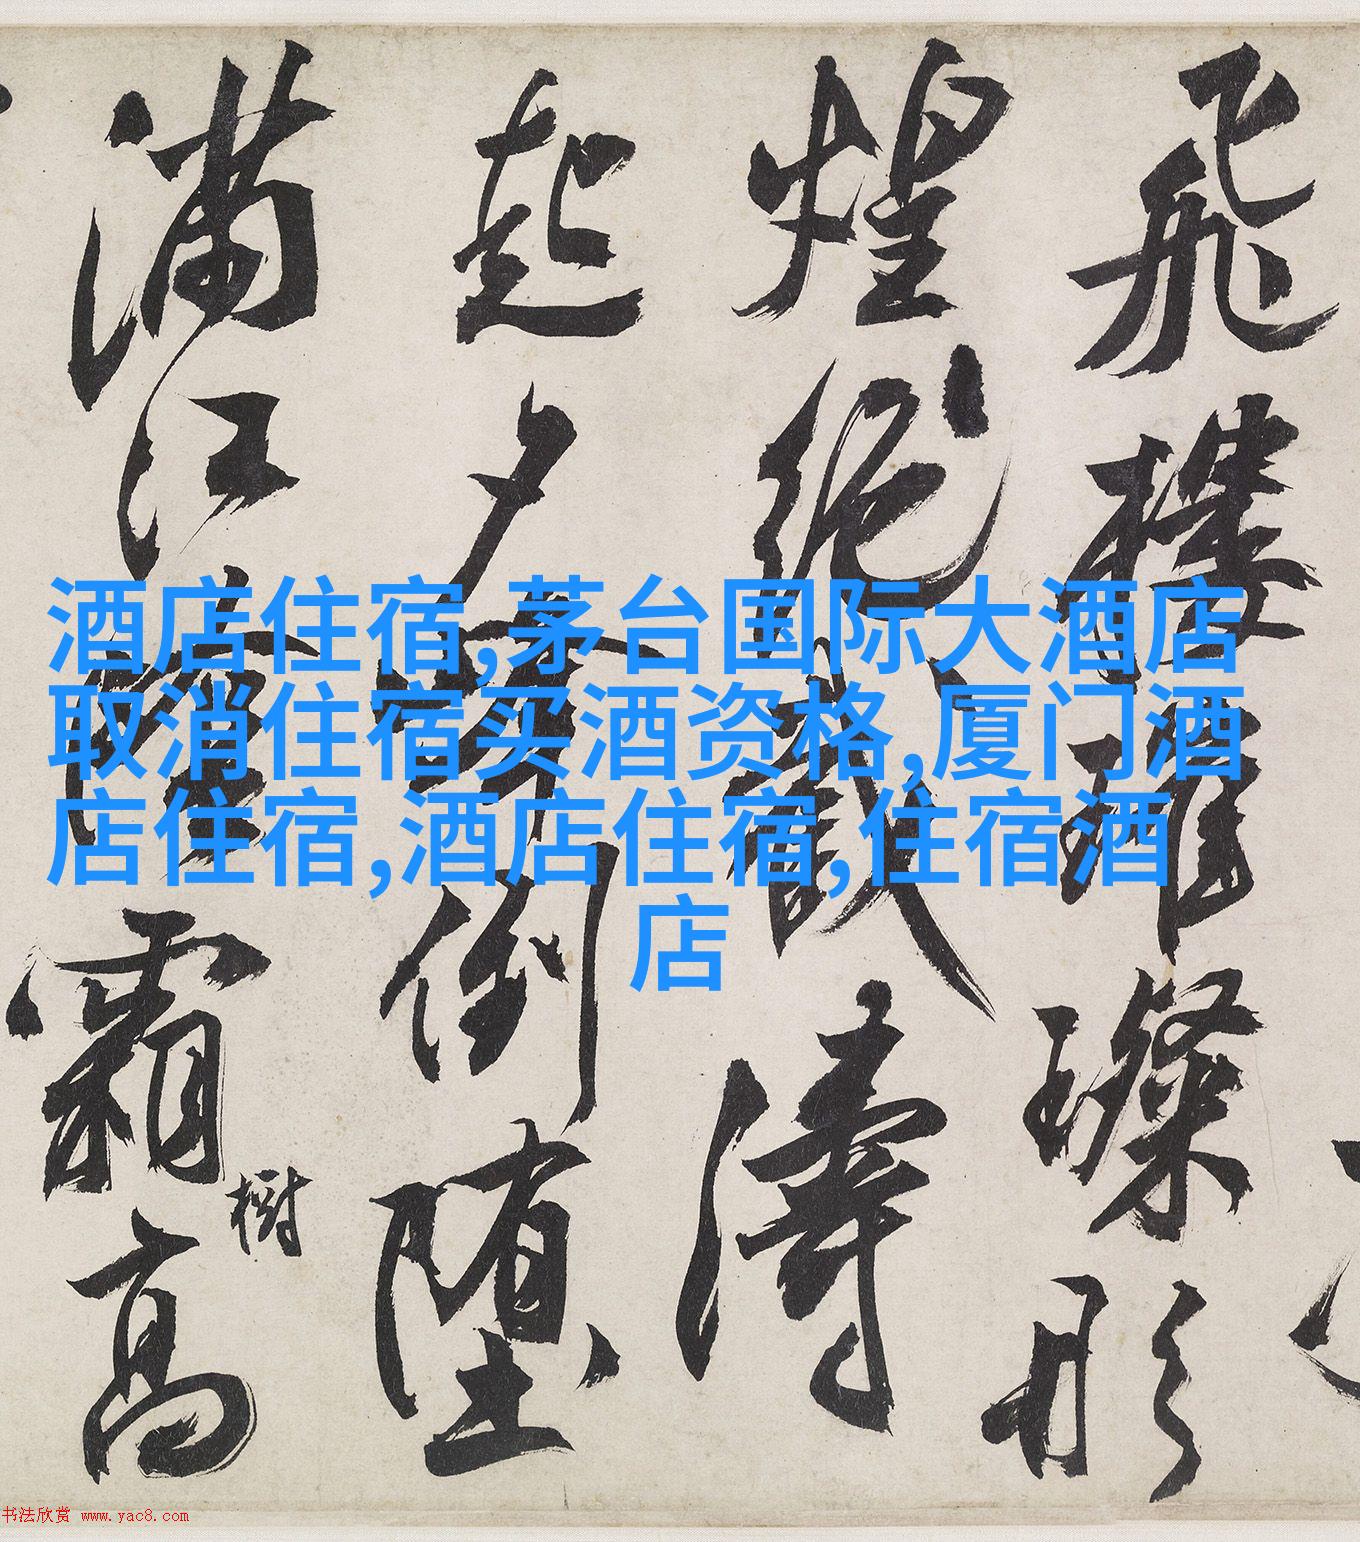 飛樓璀璨形
煌絕濤
起夕倒墮
滿江霜高
樹
酒店住宿,茅台国际大酒店
取消住宿买酒资格,厦门酒
店住宿,酒店住宿,住宿酒
店
书法欣赏 www.yac8.com